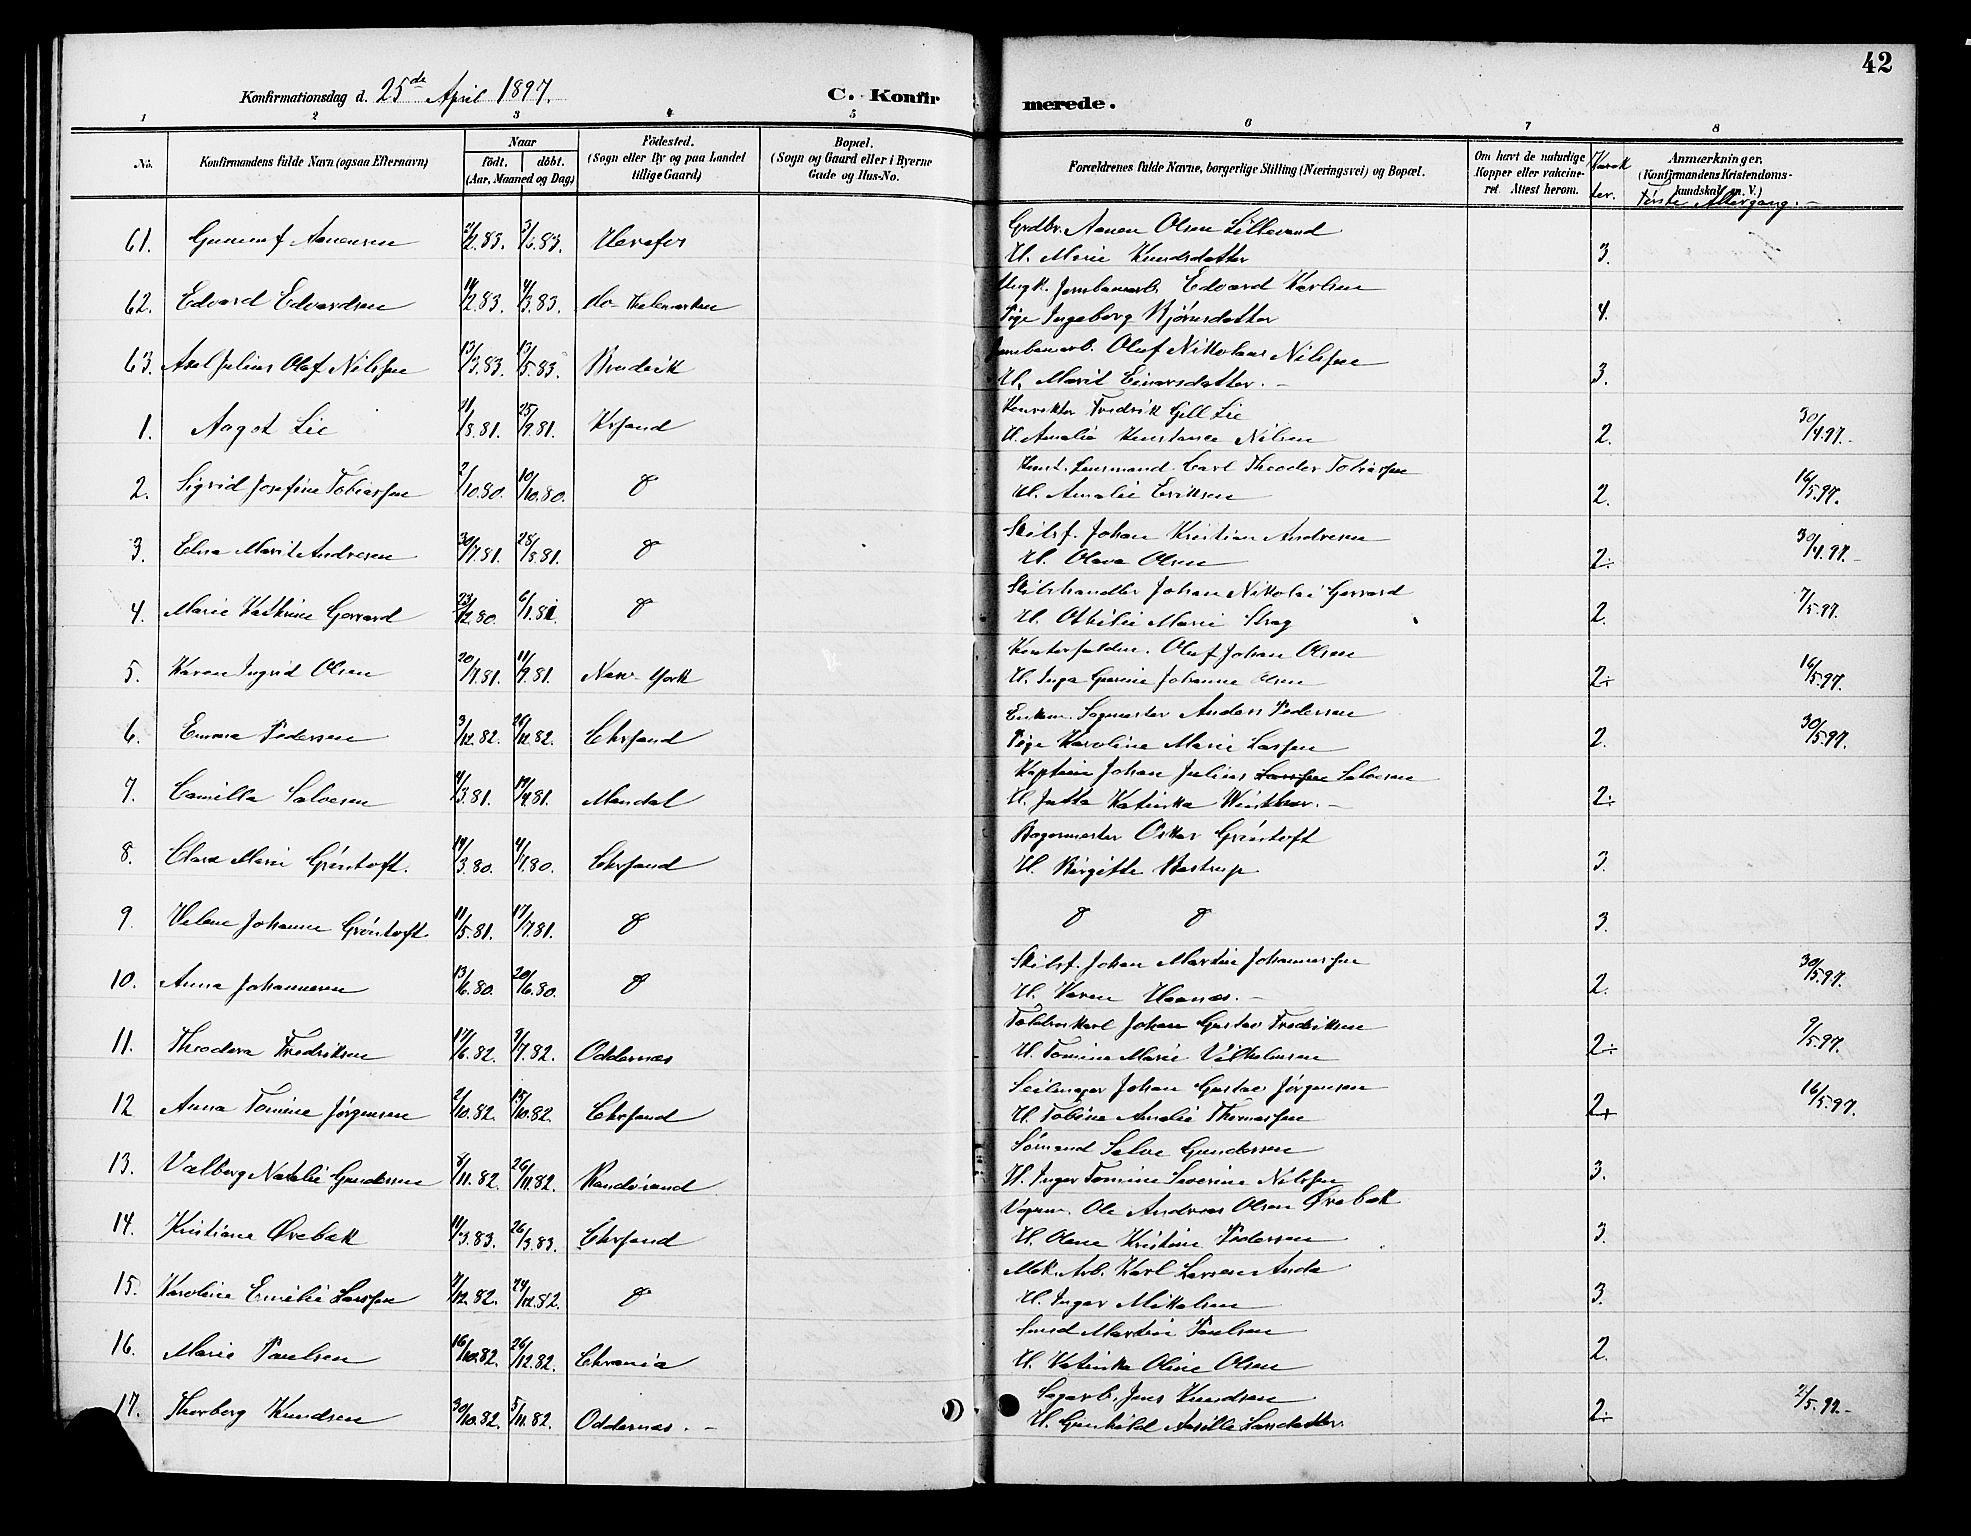 42
Konfirmationsdag d. 25de April 1897.
C. Konfirmerede.
1 2 3 4 5 6 7 8
No. Konfirmandens fulde Navn (ogsaa Efternavn) Naar født. døbt. (Aar, Maaned og Dag) Födested. (Sogn eller By og paa Landet tillige Gaard) Bopæl. (Sogn og Gaard eller i Byerne Gade og Hus-No. Forældrenes fulde Navne, borgerlige Stilling (Næringsvei) og Bopæl. Om havt de naturlige Kopper eller vakcineret. Attest herom. Karakter. Anmærkninger. (Konfirmandens Kristendomskundskab m. V.) Første Altergang.
61. Gunuf Aanensen 2/2.83. 3/6.83. Herefos Grdbr. Aanen Olsen Lillesand
H. Marie Knudsdatter 3.
62. Edvard Edvardsen 14/2.83. 4/3.83. Ungk. Jernbanearb. Edvard Karlsen
Pige Ingeborg Bjørnsdatter 4.
63. Axel Julius Olaf Nilssen 13/3.83. 13/5.83. Jernbanearb. Oluf Nikolai Nilssen
H. Marit Einarsdatter. 3.
1. Aagot Lie 21/8.81. 25/9.81. Krsand Konrektor Fredrik Gill Lie
H. Amalie Konstance Nilsen 2. 30/4.97.
2. Sigrid Josefine Tobiassen 2/10.80. 10/10.80. do Konst. Lensmand Carl Theodor Tobiassen
H. Amalie Eriksen 2. 16/5.97.
3. Elna Marit Andresen 30/7.81. 28/8.81. do Skibsf. Johan Kristian Andresen
H. Olava Olsen 2. 30/4.97.
4. Marie Kathrine Gorrard 23/12.80. 6/1.81. do Skibshandler Johan Nikolai Gorrard
H. Othilie Marie Stray 2. 7/5.97.
5. Karen Ingrid Olsen 20/7.81. 11/9.81. New-York Kontorfuldm. Oluf Johan Olsen
H. Inga Gurine Johanne Olsen 2. 16/5.97.
6. Emma Pedersen 3/12.82. 26/12.82. Chrsand Enkem. Sagmester Anders Pedersen
Pige Karoline Marie Larsen 2. 30/5.97.
7. Camilla Salvesen 4/3.81. 17/4.81. Mandal Kaptein Johan Julius Larssen Salvesen
H. Jutta Katinka Winther. 2.
8. Clara Marie Gröntoft. 14/3.80. 4/7.80. Chrsand Bagermester Oskar Gröntoft
H. Birgitte Bastrup 3.
9. Helene Johanne Gröntoft 11/5.81. 17/7.81. do do do 3.
10. Anna Johannesen 13/6.80. 20/6.80. do Skibsf. Johan Martin Johannessen
H. Karen Haanæs. 2. 30/5.97.
11. Theodora Fredriksen 17/6.82. 9/7.82. Oddernæs Johan Gustav Fredriksen
H. Tomine Marie Vilhelmsen 2. 9/5.97.
12 Anna Tomine Jørgensen 2/10.82. 15/10.82. Chrsand Seilmager Johan Gustav Jørgensen
H. Tobine Amalie Thomassen 2+ 16/5.97.
13. Valborg Natalie Gundersen 8/11.82. 26/11.82. Randösund Sømand Salve Gundersen
H. Inger Tomine Severine Nilssen 3.
14. Kristiane Ørebæk 11/3.83. 26/3.83. Chrsand Vognm. Ole Andreas Olsen Ørebæk
H. Olene Kristine Pedersen 3.
15. Karoline Emilie Larssen 7/12.82. 24/12.82. do Mek. Arb. Karl Larsen Anda
H. Inger Mikalsen 3.
16. Marie Paulsen 16/10.82. 26/12.82. Chrania Smed Martin Paulsen
H. Katinka Oline Olsen 2.
17. Thorborg Knudsen 30/10.82. 5/11.82. Oddernæs. Sagarb. Jens Knudsen
H. Gunhild Aasille Larsdatter 2. 2/5.97.